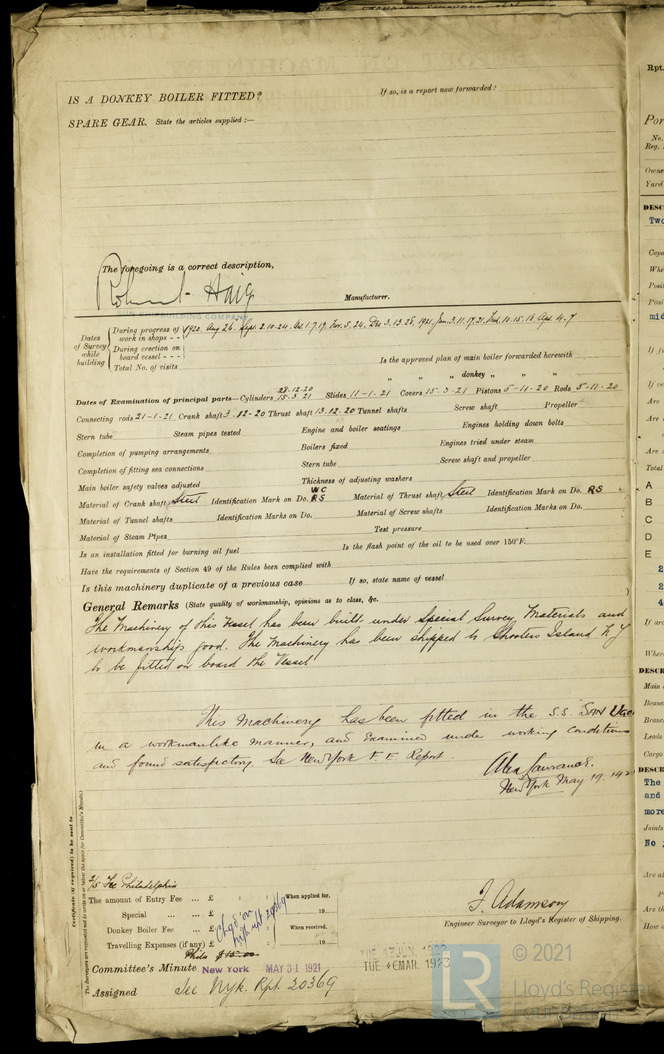 IS A DONKEY BOILER FITTED?
If so, is a report now forwarded?
SPARE GEAR. State the articles supplied :—
The foregoing is a correct description,
Robert Haig
SUN SHIPBUILDING COMPANY
Manufacturer.
Dates of Survey while building
During progress of work in shops - - 1920. Aug 26. Sept. 2.10.24. Oct. 1.7.19. Nov. 5.24. Dec 3.13.28. 1921 Jan. 3.11.17.21. Feb. 10.15.18. Apr. 4.7
During erection on board vessel - - -
Total No. of visits
Is the approved plan of main boiler forwarded herewith
" " " donkey " " "
Dates of Examination of principal parts—Cylinders 28.12.20 15.3.21 Slides 11-1-21 Covers 15.3.21 Pistons 5-11-20 Rods 5-11-20
Connecting rods 21-1-21 Crank shaft 3.12-20 Thrust shaft 13.12.20 Tunnel shafts Screw shaft Propeller
Stern tube Steam pipes tested Engine and boiler seatings Engines holding down bolts
Completion of pumping arrangements Boilers fixed Engines tried under steam
Completion of fitting sea connections Stern tube Screw shaft and propeller
Main boiler safety valves adjusted Thickness of adjusting washers
Material of Crank shaft Steel Identification Mark on Do. WC RS Material of Thrust shaft Steel Identification Mark on Do. RS
Material of Tunnel shafts Identification Marks on Do. Material of Screw shafts Identification Marks on Do.
Material of Steam Pipes Test pressure
Is an installation fitted for burning oil fuel Is the flash point of the oil to be used over 150°F.
Have the requirements of Section 49 of the Rules been complied with
Is this machinery duplicate of a previous case If so, state name of vessel
General Remarks (State quality of workmanship, opinions as to class, &c.
The Machinery of this Vessel has been built under Special Survey, Materials and
workmanship good. The Machinery has been shipped to Shooters Island N Y
to be fitted on board the Vessel
This machinery has been fitted in the S.S. SAN
in a workmanlike manner, and examined under working conditions
and found satisfactory. See New York F. E. Report.
New York May 19. 192
Certificate (if required) to be sent to
The Surveyors are requested not to write on or below the space for Committee's Minute.
2/5 Fee Philadelphia
The amount of Entry Fee ... £ : : When applied for,
Special ... ... £ : : 19
Donkey Boiler Fee ... £ : : When received,
Travelling Expenses (if any) £ : : 19
Phila $15.00
Chgd on
NYk rpt 20369
F. Adamson
Engineer Surveyor to Lloyd's Register of Shipping.
Committee's Minute New York MAY 31 1921
TUE. MAR. 1923
Assigned See Nyk. Rpt. 20369
LR
© 2021
Lloyd's Register
Foundation
Rpt.
Por
No.
Reg.
Owne
Yard
DESC
Two
Capa
Posit
Posi
mid
If j
Are
Are
Total
A
B
C
D
E
2
2
4
If ar
Wher
DESCR
Main
Branc
Branc
Leads
Cargo
DESCR
The
and
more
Joints
No
Are al
Are th
How